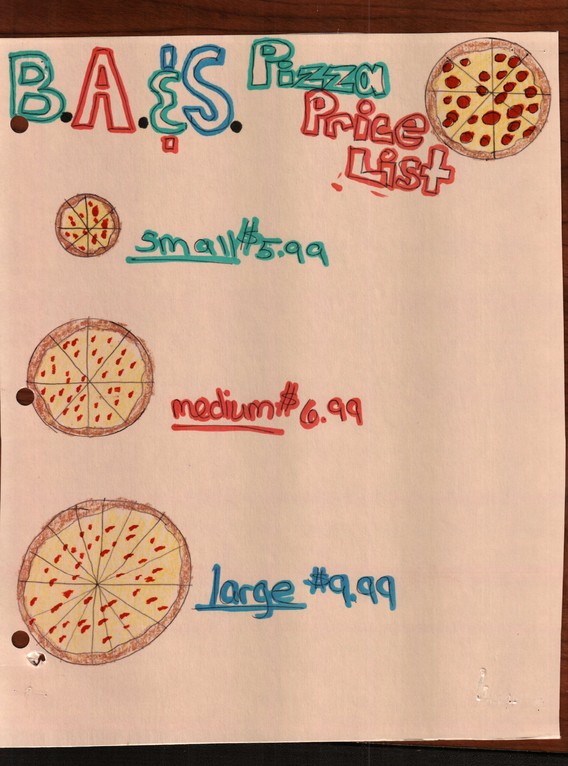 B.A.&S. Pizza
Price
List
small $5.99
medium $6.99
large $9.99